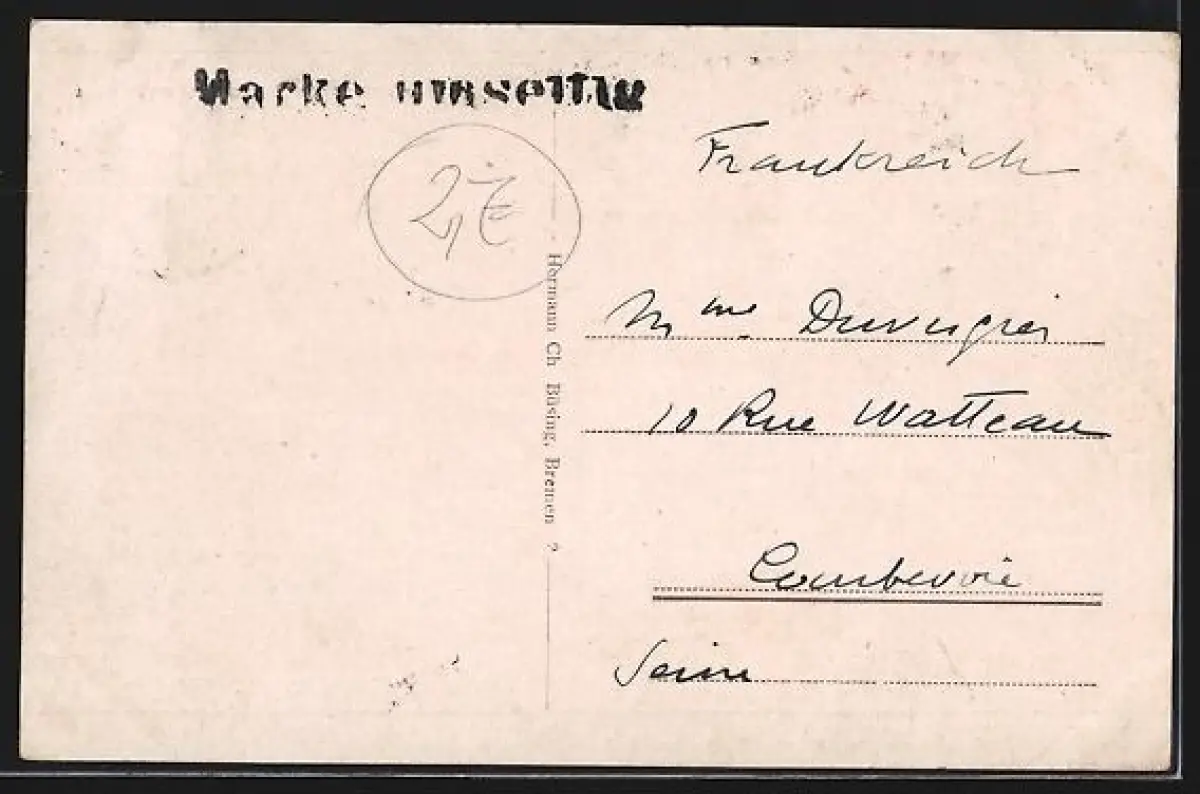 Marke umseitig
Frankreich
2,
Hermann Ch Büsing, Bremen ?
Mme
10 Rue Watteau
Courbevoie
Seine